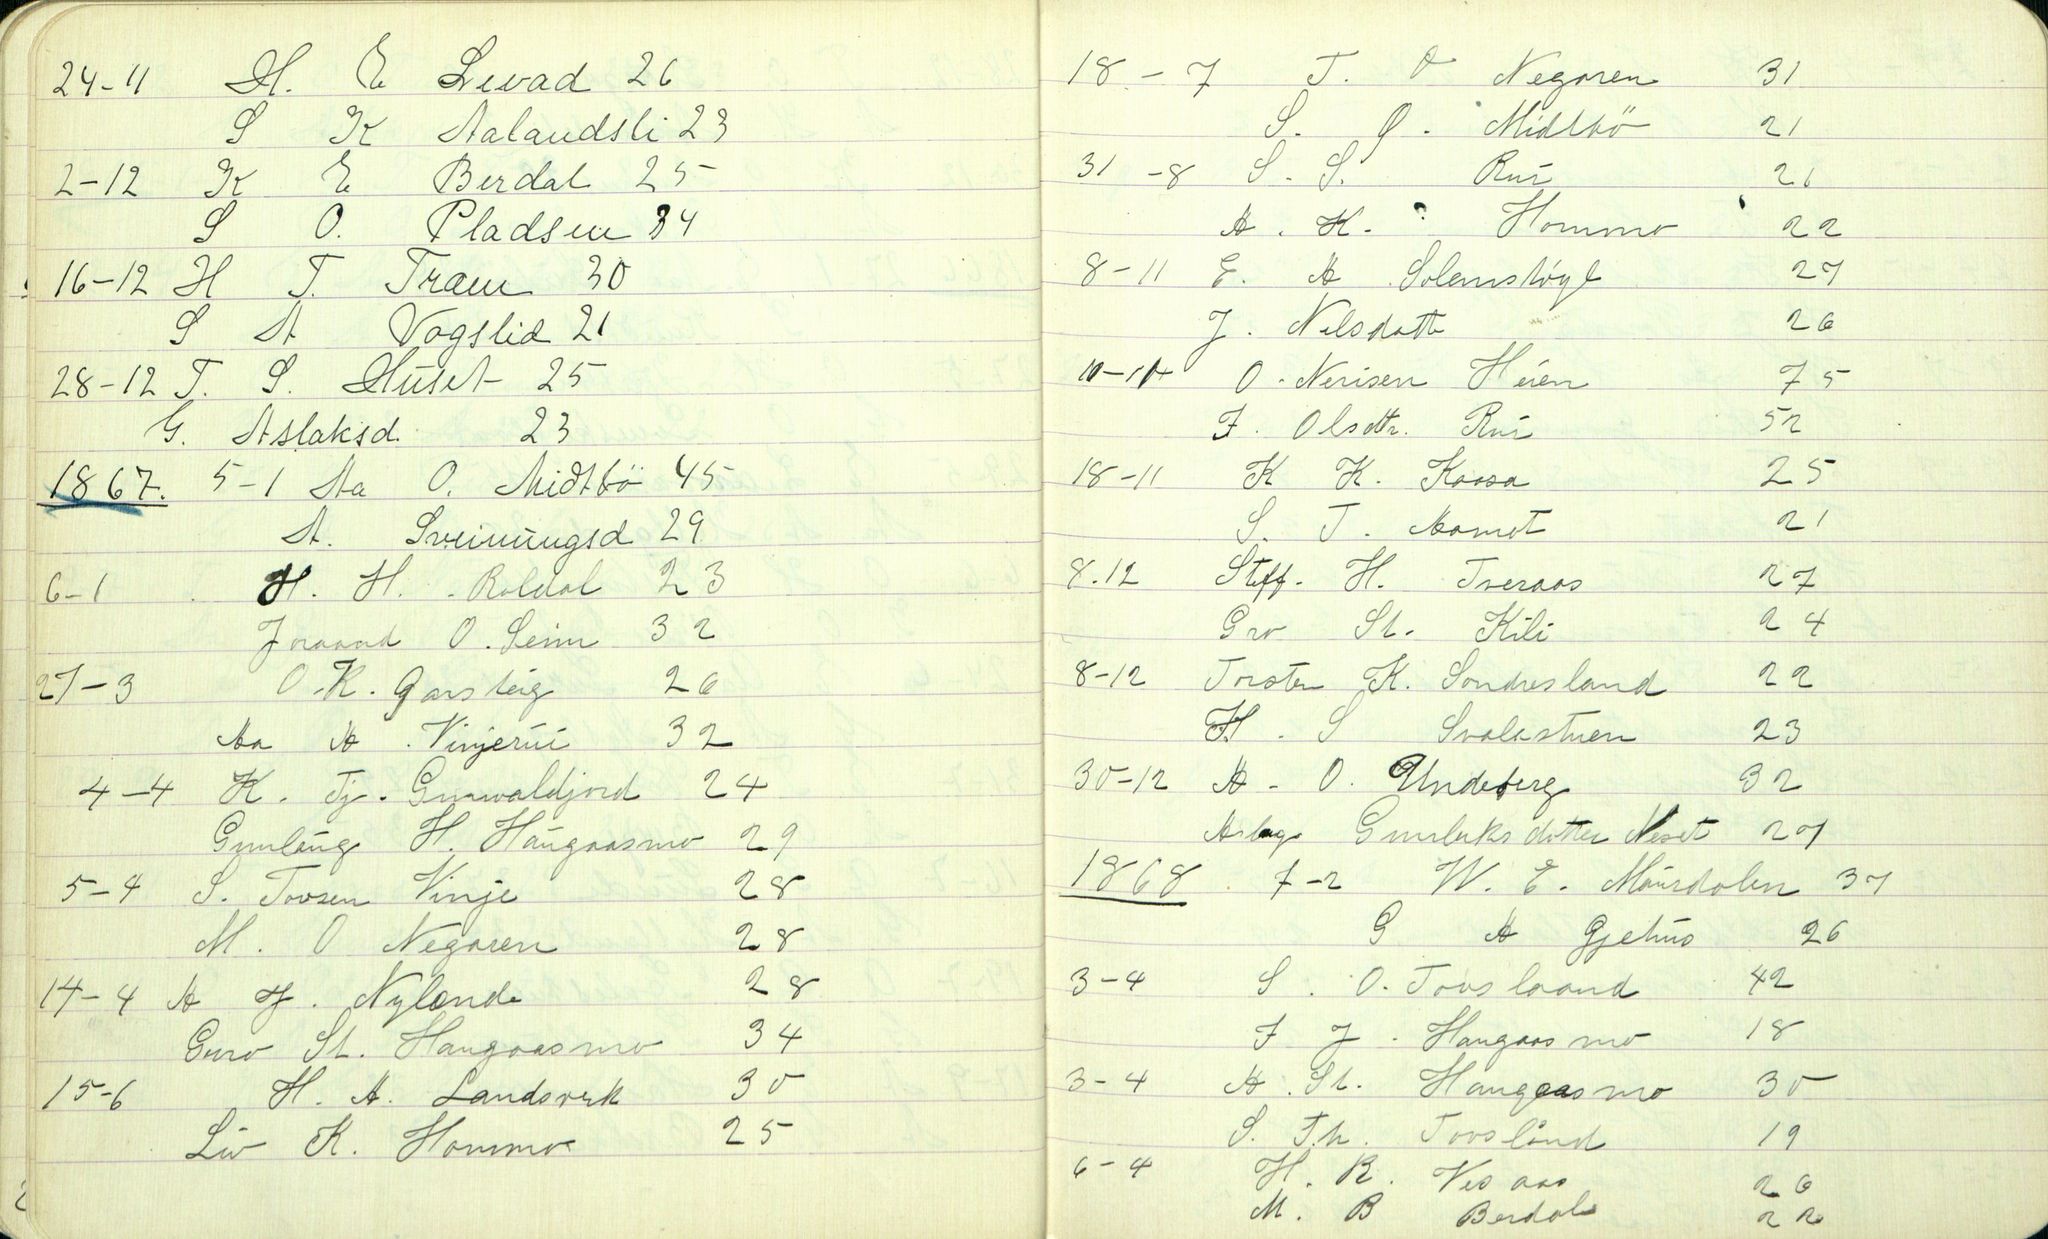 24-11 H. E Levad 26
S K Aalandsli 23
2-12 K E Berdal 25
S O. Pladsen 34
16-12 H T. Traen 30
S A Vogslid 21
28-12 T. S. Huset 25
G. Aslaksd. 23
1867. 5-1 Aa O. Midtbö 45
A. Sveinungsd 29
6-1 H. H. Roldal 23
Joraand O. Seim 32
27-3 O. K. Garsteig 26
Aa A. Vinjerui 32
4-4 K. Tj. Grunvaldjord 24
Gunlaug H. Haugaasmo 29
5-4 S. Tovsen Vinje 28
M. O Negaren 28
14-4 A J. Nylende 28
Guro St. Haugaasmo 34
15-6 H. A. Landsverk 30
Liv K. Hommo 25
18-7 T. O Negaren 31
S. O. Midtbö 21
31-8 S. S. Rui 21
A. K. Hommo 22
8-11 E. A Solemshögl 27
J. Nilsdatt 26
10-11 O. Nerisen Heien 75
I. Olsdtr. Rui 52
18-11 K K. Kaasa 25
S. T. Aamot 21
8.12 Steff. H. Tveraas 27
Gro St. Kili 24
8-12 Torsten K. Sondresland 22
H. S Svalastuen 23
30-12 A. O. Undeberg 32
Aslaug Gunleksdotter Neset 27
1868 7-2 W. E. Maurdalen 37
G A Gjehus 26
3-4 S. O. Tovslaand 42
I J. Haugaasmo 18
3-4 A. St. Haugaasmo 30
S. Th. Tovsland 19
6-4 H. R. Vesaas 26
M. B Berdal 22